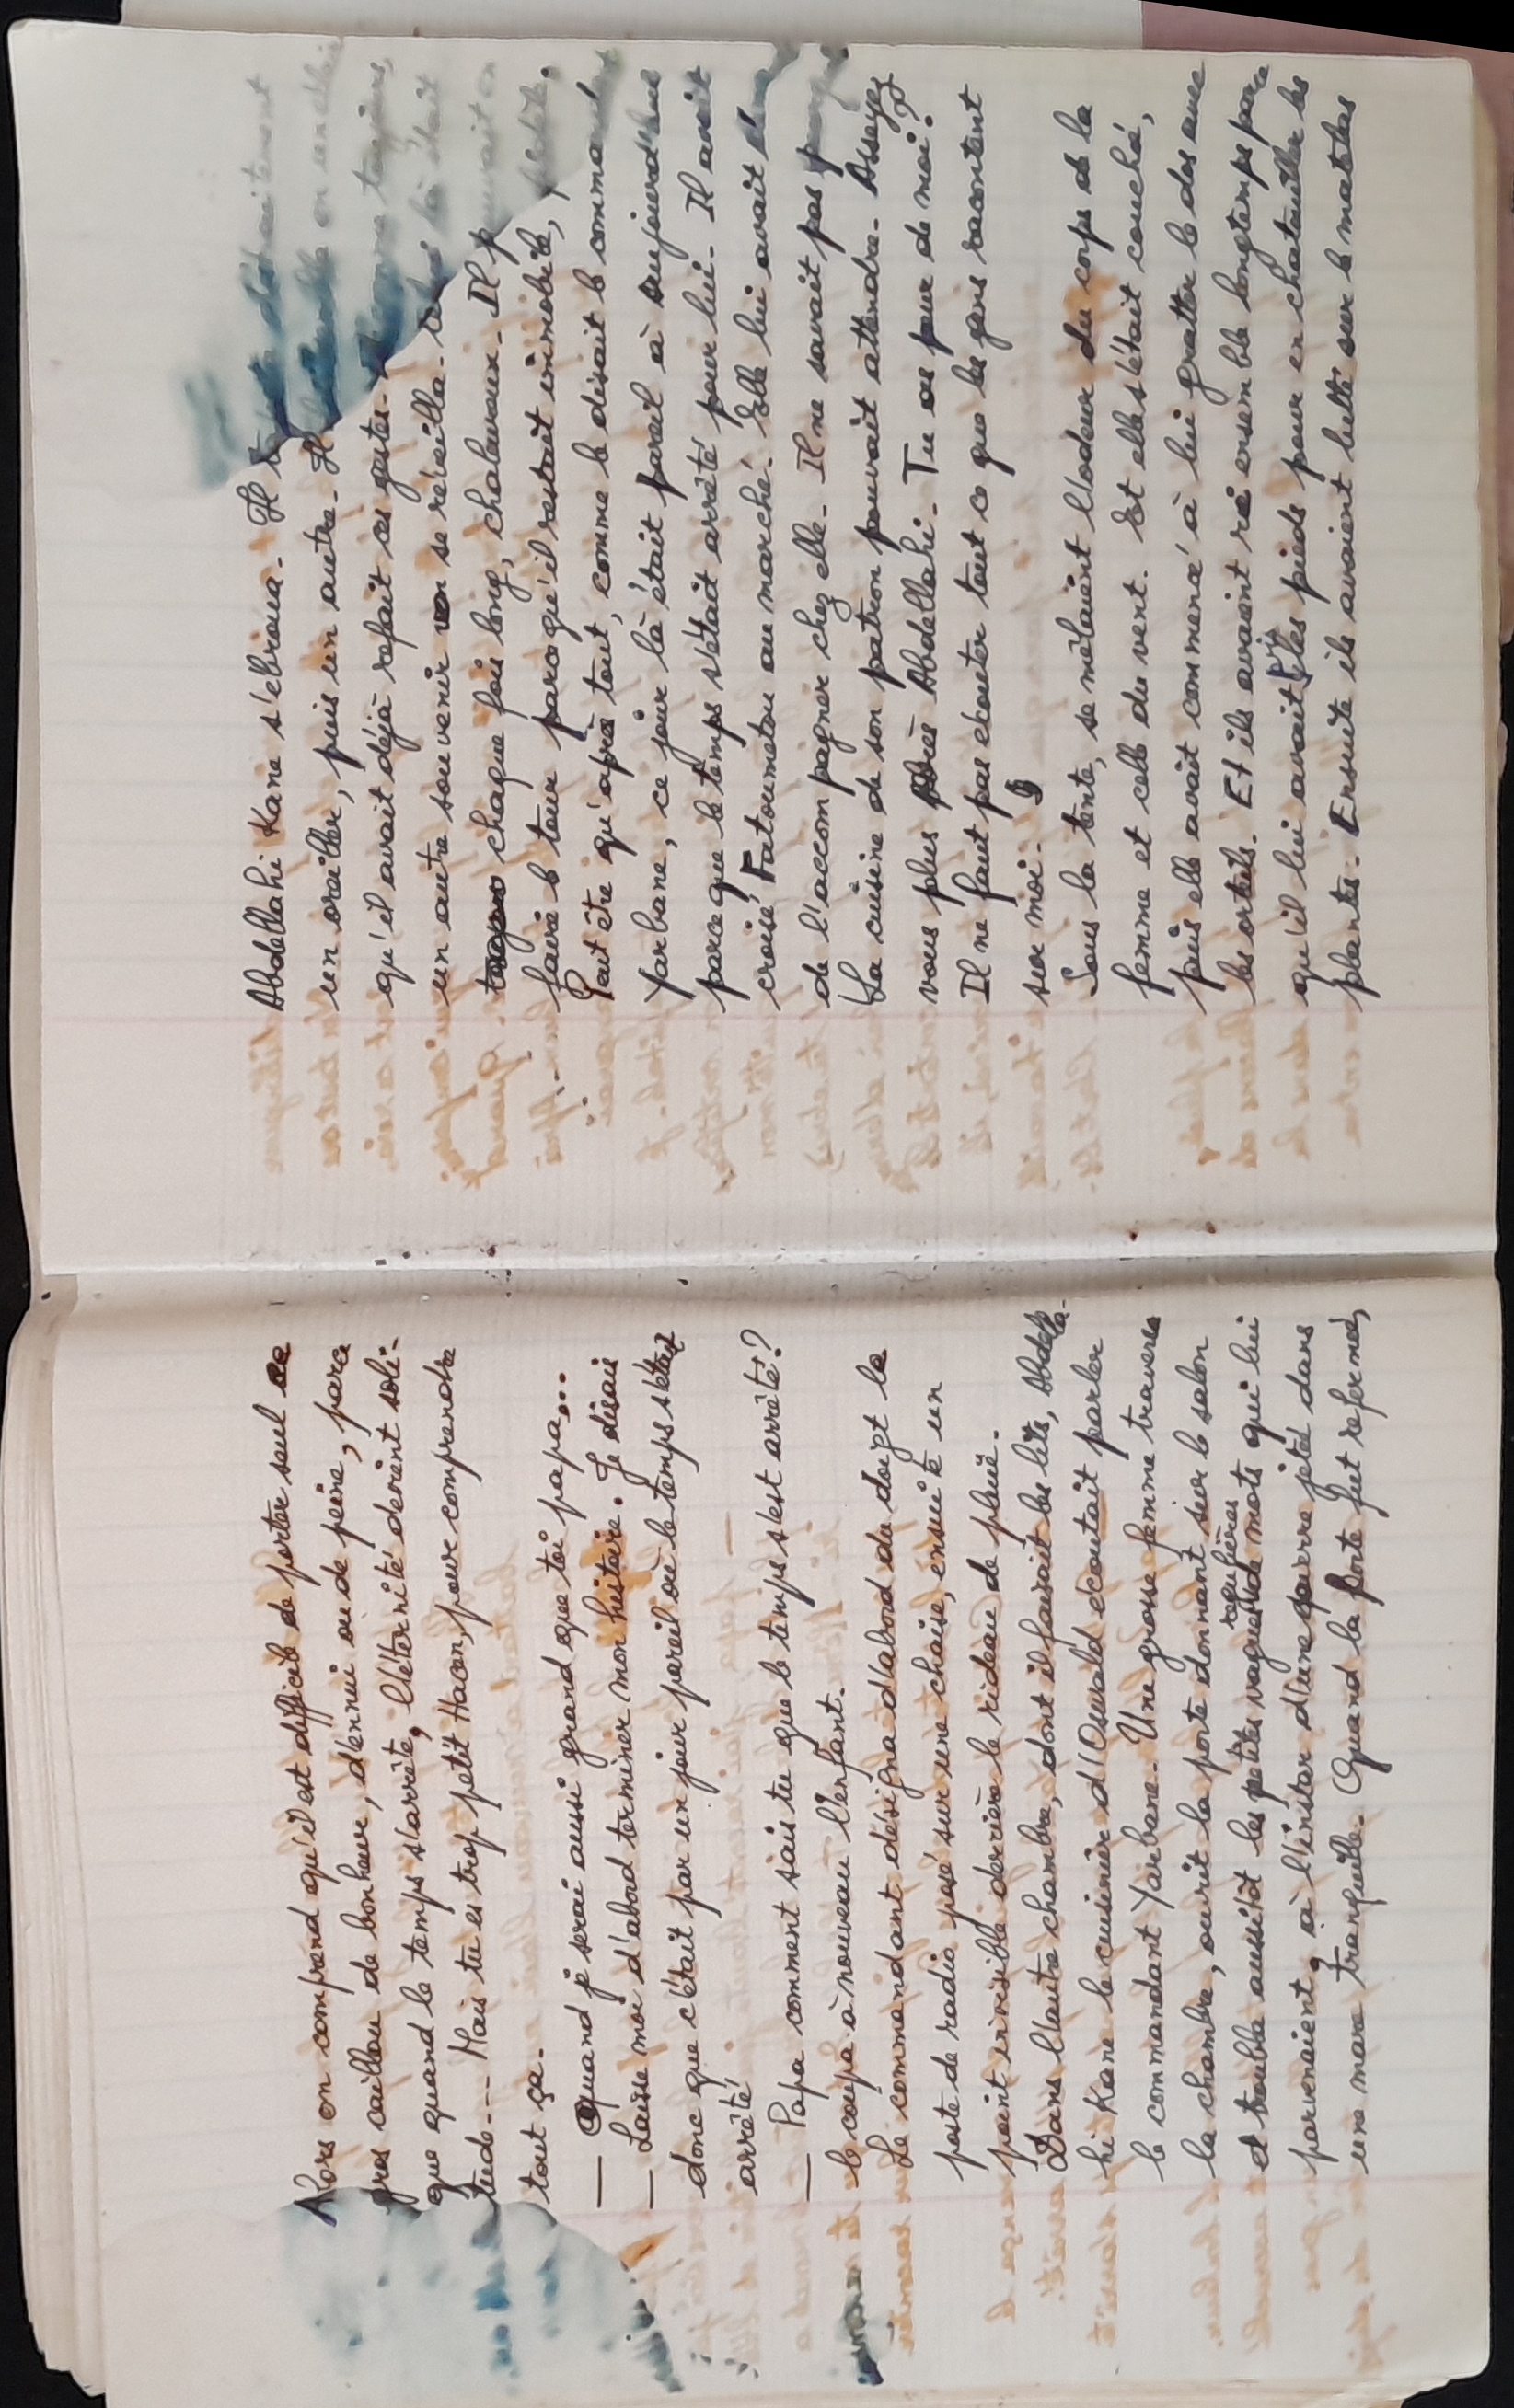 Alors on comprend qu'il est difficile de porter seul ce
gros caillou de bonheur, d'ennui ou de peine, parce
que quand le temps s'arrête, l'éternité devient soli-
tude--- Mais tu es trop petit Hacen, pour comprendre
tout ça.
— Quand je serai aussi grand que toi papa...
— Laisse moi d'abord terminer mon histoire. Je disais
donc que c'était par un jour pareil où le temps s'était
arrêté.
— Papa comment sais tu que le temps s'est arrêté?
le coupa à nouveau l'enfant.
Le commandant désigna d'abord du doigt le
poste de radio posé sur une chaise, ensuite un
point invisible derrière le rideau de pluie.
Dans l'autre chambre, dont il faisait les lits, Abdella-
hi Kane le cuisinier d'Oswald écoutait parler
le commandant Yarbane. Une grosse femme traversa
la chambre, ouvrit la porte donnant sur le salon
et troubla aussitôt les petites vagues régulières de mots qui lui
parvenaient, à l'instar d'une pierre jetée dans
une mare tranquille. Quand la porte fut refermée,
Abdellahi Kane s'ébroua. Il
un oreiller, puis un autre. Il
qu'il avait déjà refait ces gestes.
un autre souvenir se réveilla.
chaque fois long, chaleureux. Il
faire le tour parce qu'il restait immobile,
Peut être qu'après tout, comme le disait le commandant
Yarbane, ce jour là était pareil à aujourd'hui
parce que le temps s'était arrêté pour lui. Il avait
croisé Fatoumetou au marché. Elle lui avait
de l'accompagner chez elle. Il ne savait pas
La cuisine de son patron pouvait attendre. Asseyez
vous plus près Abdellahi. Tu as peur de moi?
Il ne faut pas écouter tout ce que les gens racontent
sur moi.
Sous la tente, se mêlaient l'odeur du corps de la
femme et celle du vent. Et elle s'était couché,
puis elle avait commencé à lui gratter le dos avec
les orteils. Et ils avaient ri ensemble longtemps parce
qu'il lui avait pris les pieds pour en chatouiller les
plantes. Ensuite ils avaient lutté sur le matelas